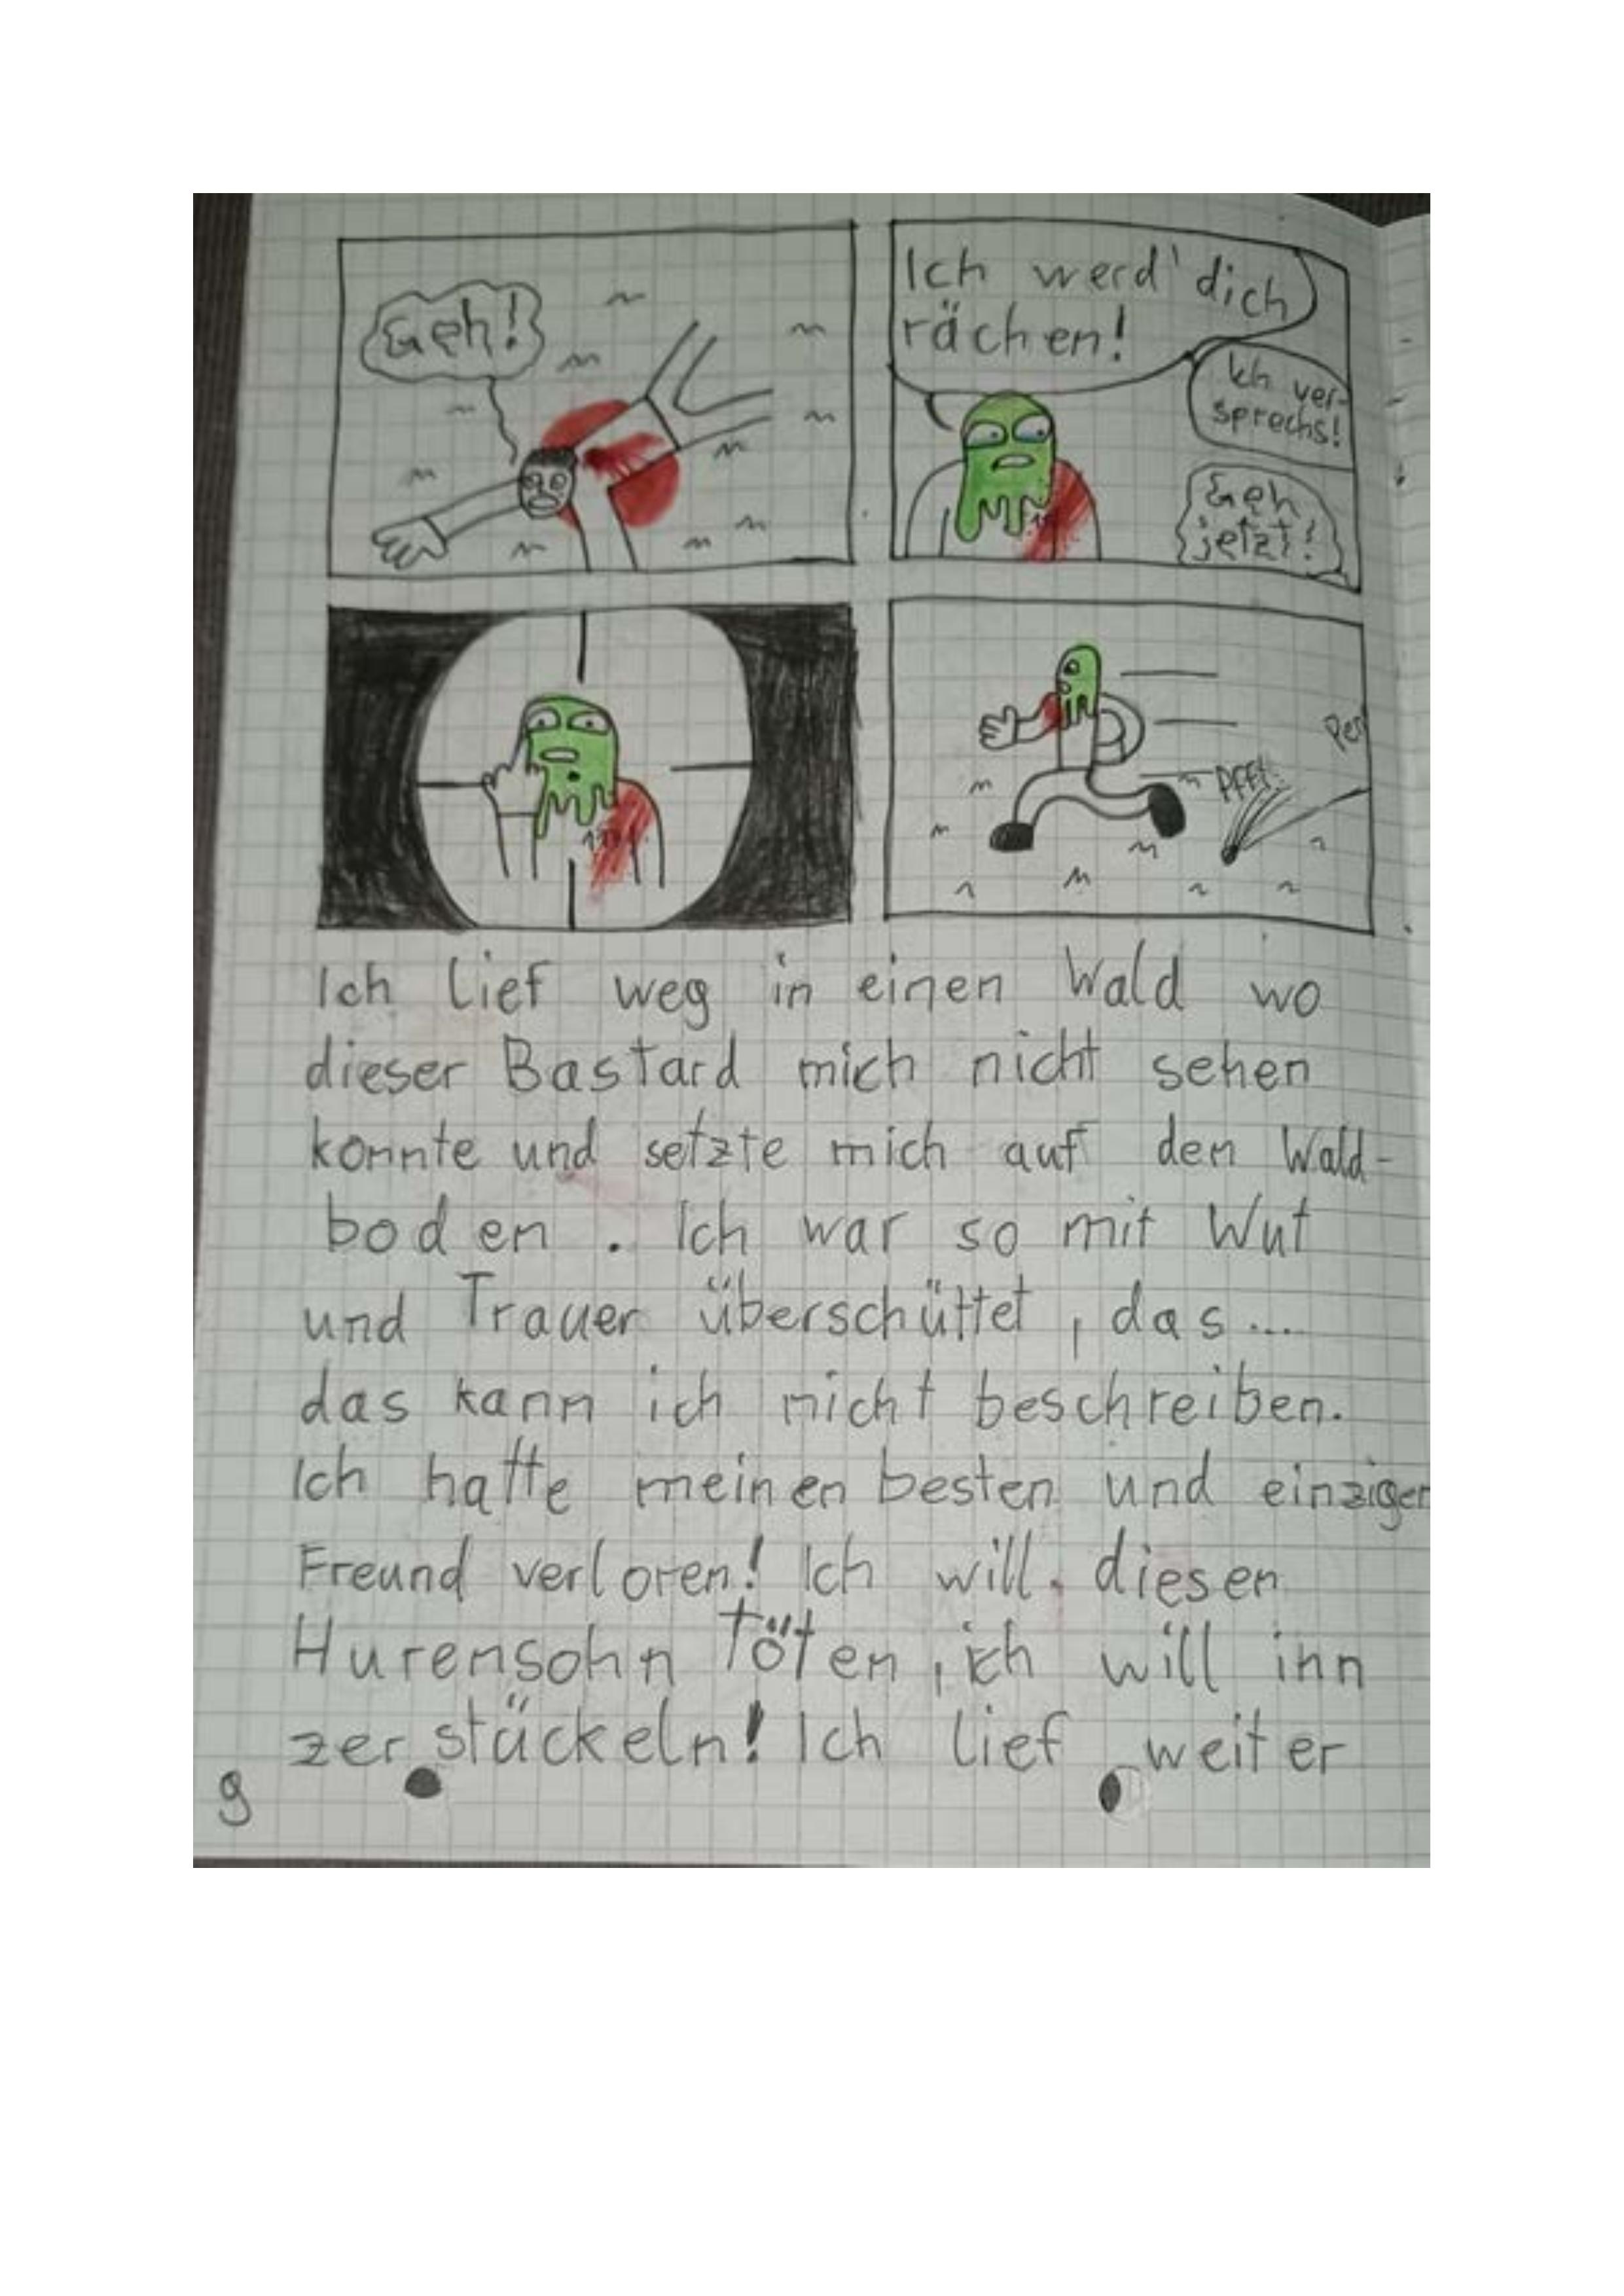 Geh!
Ich werd' dich
rächen!
Ich ver-
sprechs!
Geh
jetzt!
Pff!
Ich lief weg in einen Wald wo
dieser Bastard mich nicht sehen
konnte und setzte mich auf den Wald-
boden. Ich war so mit Wut
und Trauer überschüttet, das...
das kann ich nicht beschreiben.
Ich hatte meinen besten und einzigen
Freund verloren! Ich will diesen
Hurensohn töten, ich will inn
zerstückeln! Ich lief weiter
9